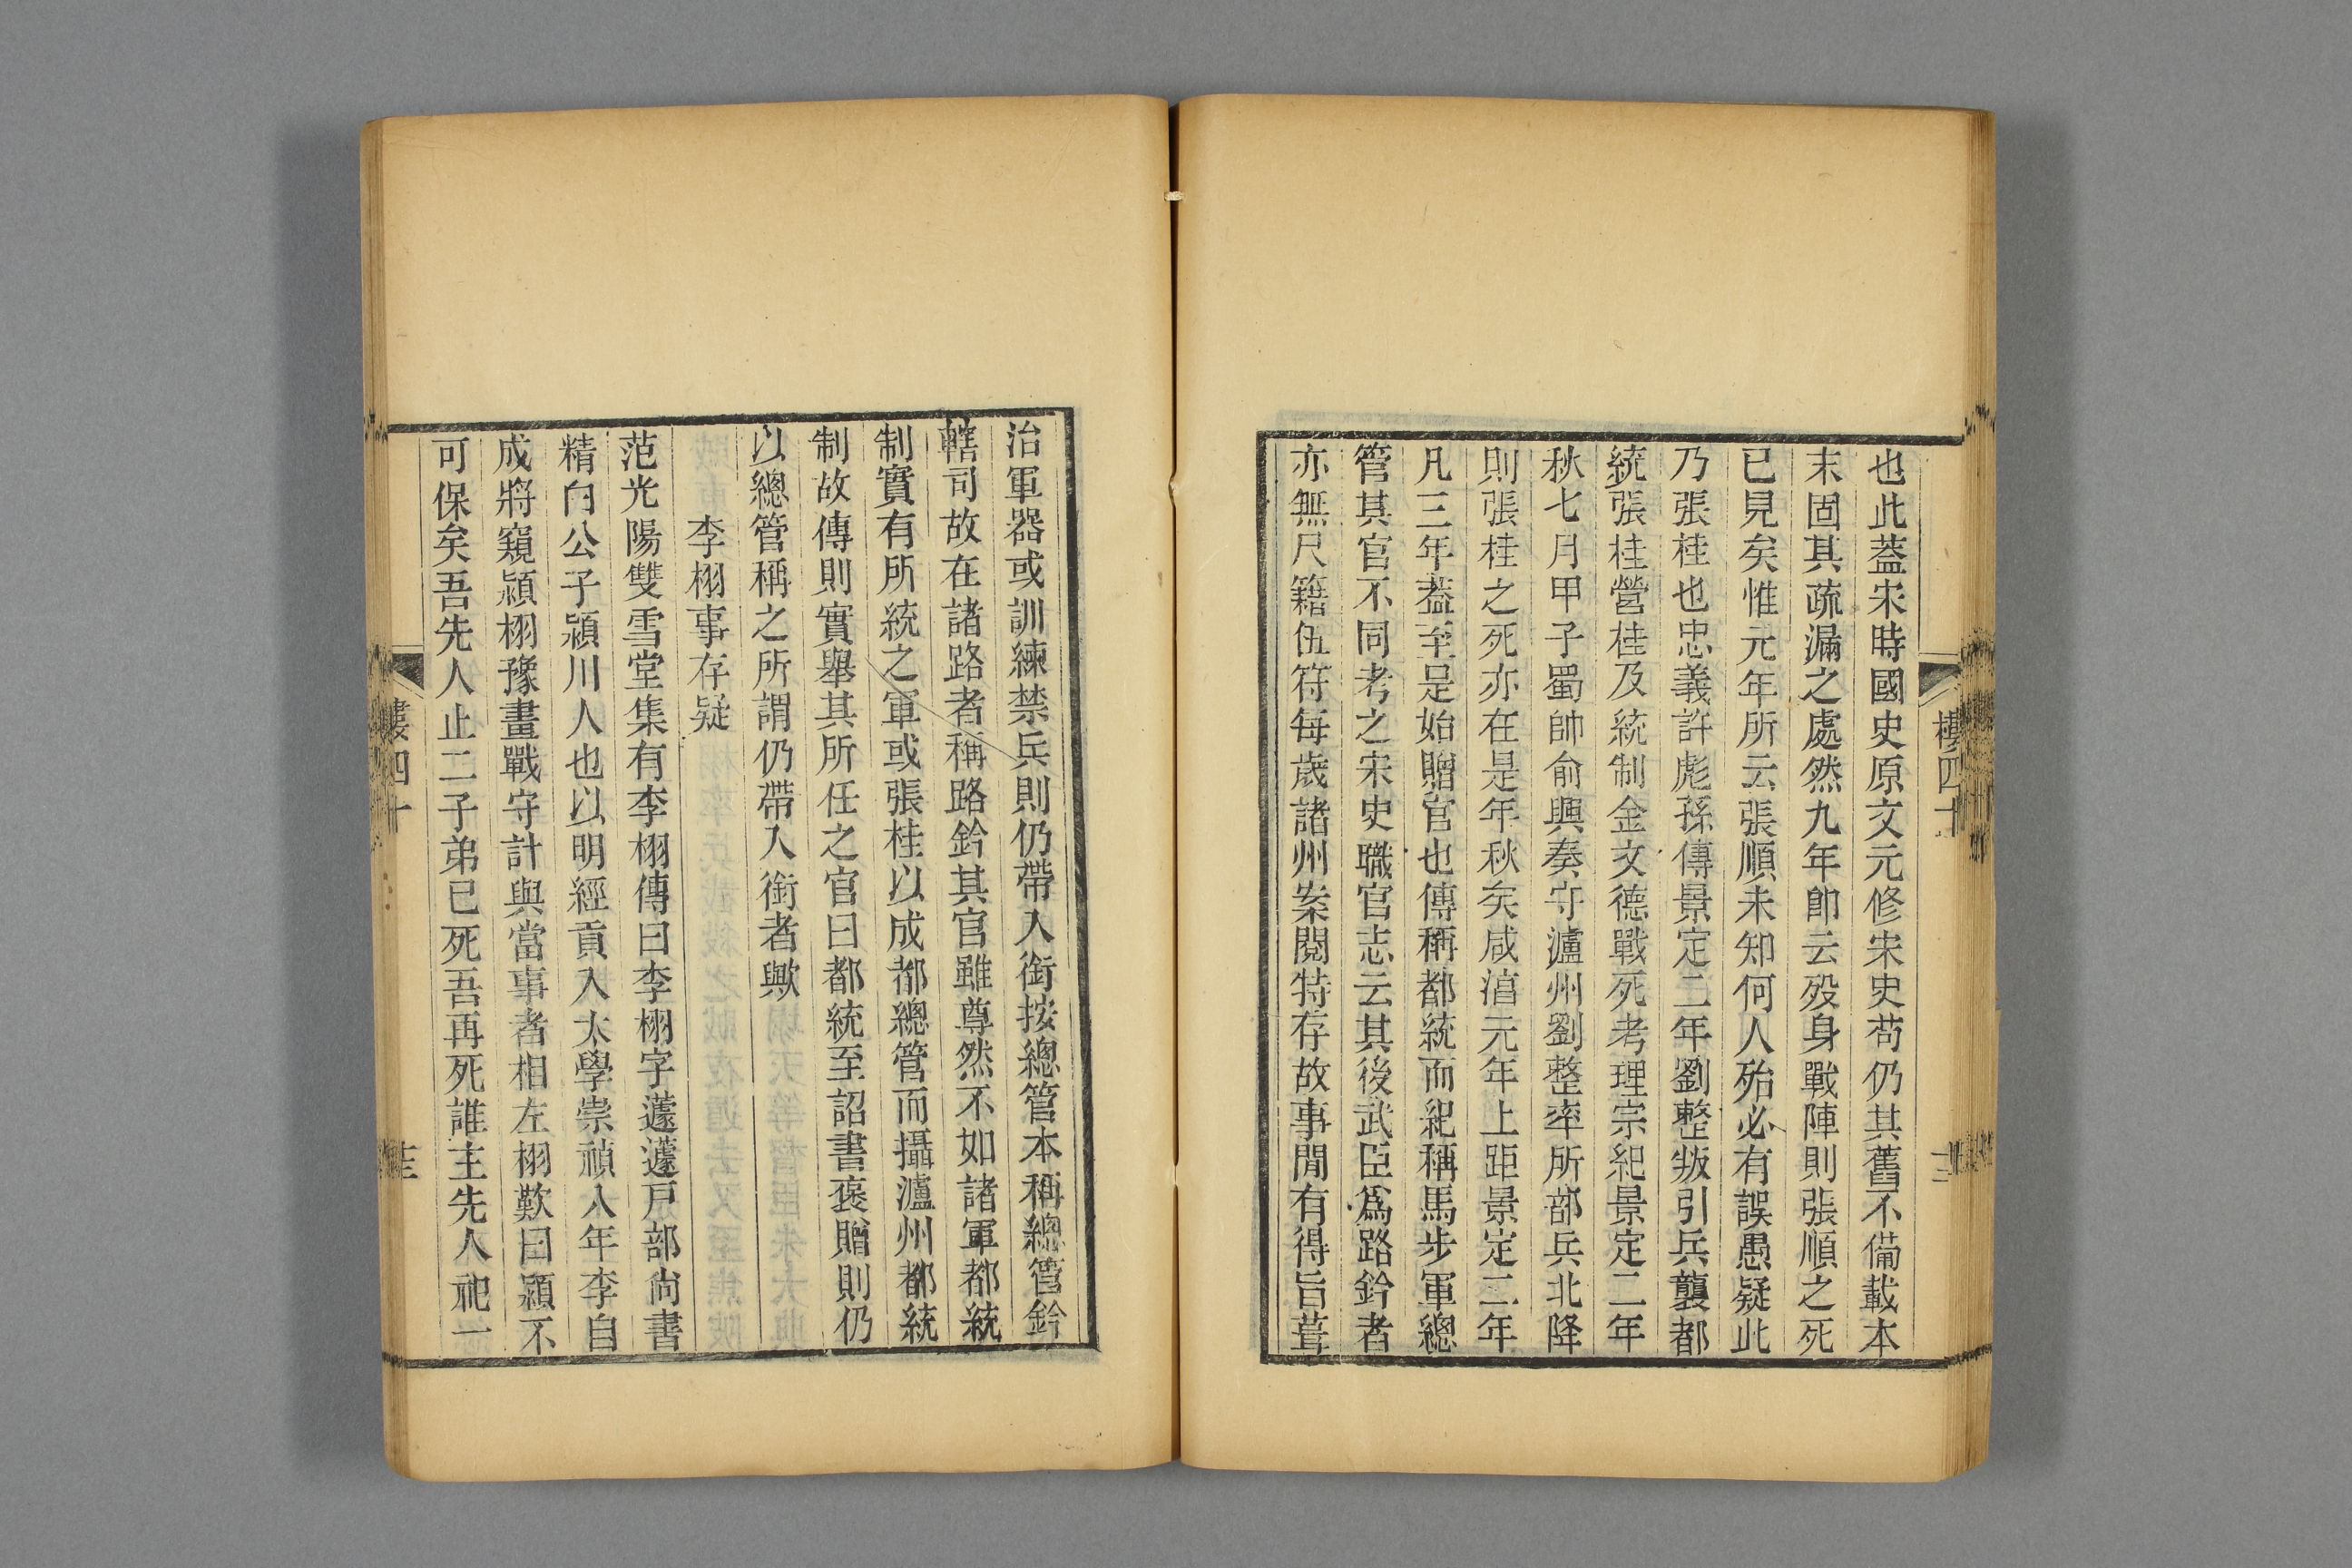 也此蓋宋時國史原文元修宋史苟仍其舊不備載本
末固其疏漏之處然九年卽云歿身戰陣則張順之死
已見矣惟元年所云張順未知何人殆必有誤愚疑此
乃張桂也忠義許彪孫傳景定二年劉整叛引兵襲都
統張桂營桂及統制金文德戰死考理宗紀景定二年
秋七月甲子蜀帥俞興奏守瀘州劉整率所部兵北降
則張桂之死亦在是年秋矣咸淳元年上距景定二年
凡三年蓋至是始贈官也傳稱都統而紀稱馬步軍總
管其官不同考之宋史職官志云其後武臣爲路鈐者
亦無尺籍伍符每歲諸州案閱特存故事閒有得旨葺
樓四十
治軍器或訓練禁兵則仍帶入銜按總管本稱總管鈐
轄司故在諸路者稱路鈐其官雖尊然不如諸軍都統
制實有所統之軍或張桂以成都總管而攝瀘州都統
制故傳則實舉其所任之官曰都統至詔書褒贈則仍
以總管稱之所謂仍帶入銜者歟
李栩事存疑
范光陽雙雪堂集有李栩傳曰李栩字蘧蘧戸部尙書
精白公子潁川人也以明經貢入太學崇禎八年李自
成將窺潁栩豫畫戰守計與當事者相左栩歎曰潁不
可保矣吾先人止二子弟已死吾再死誰主先人祀一
樓四十